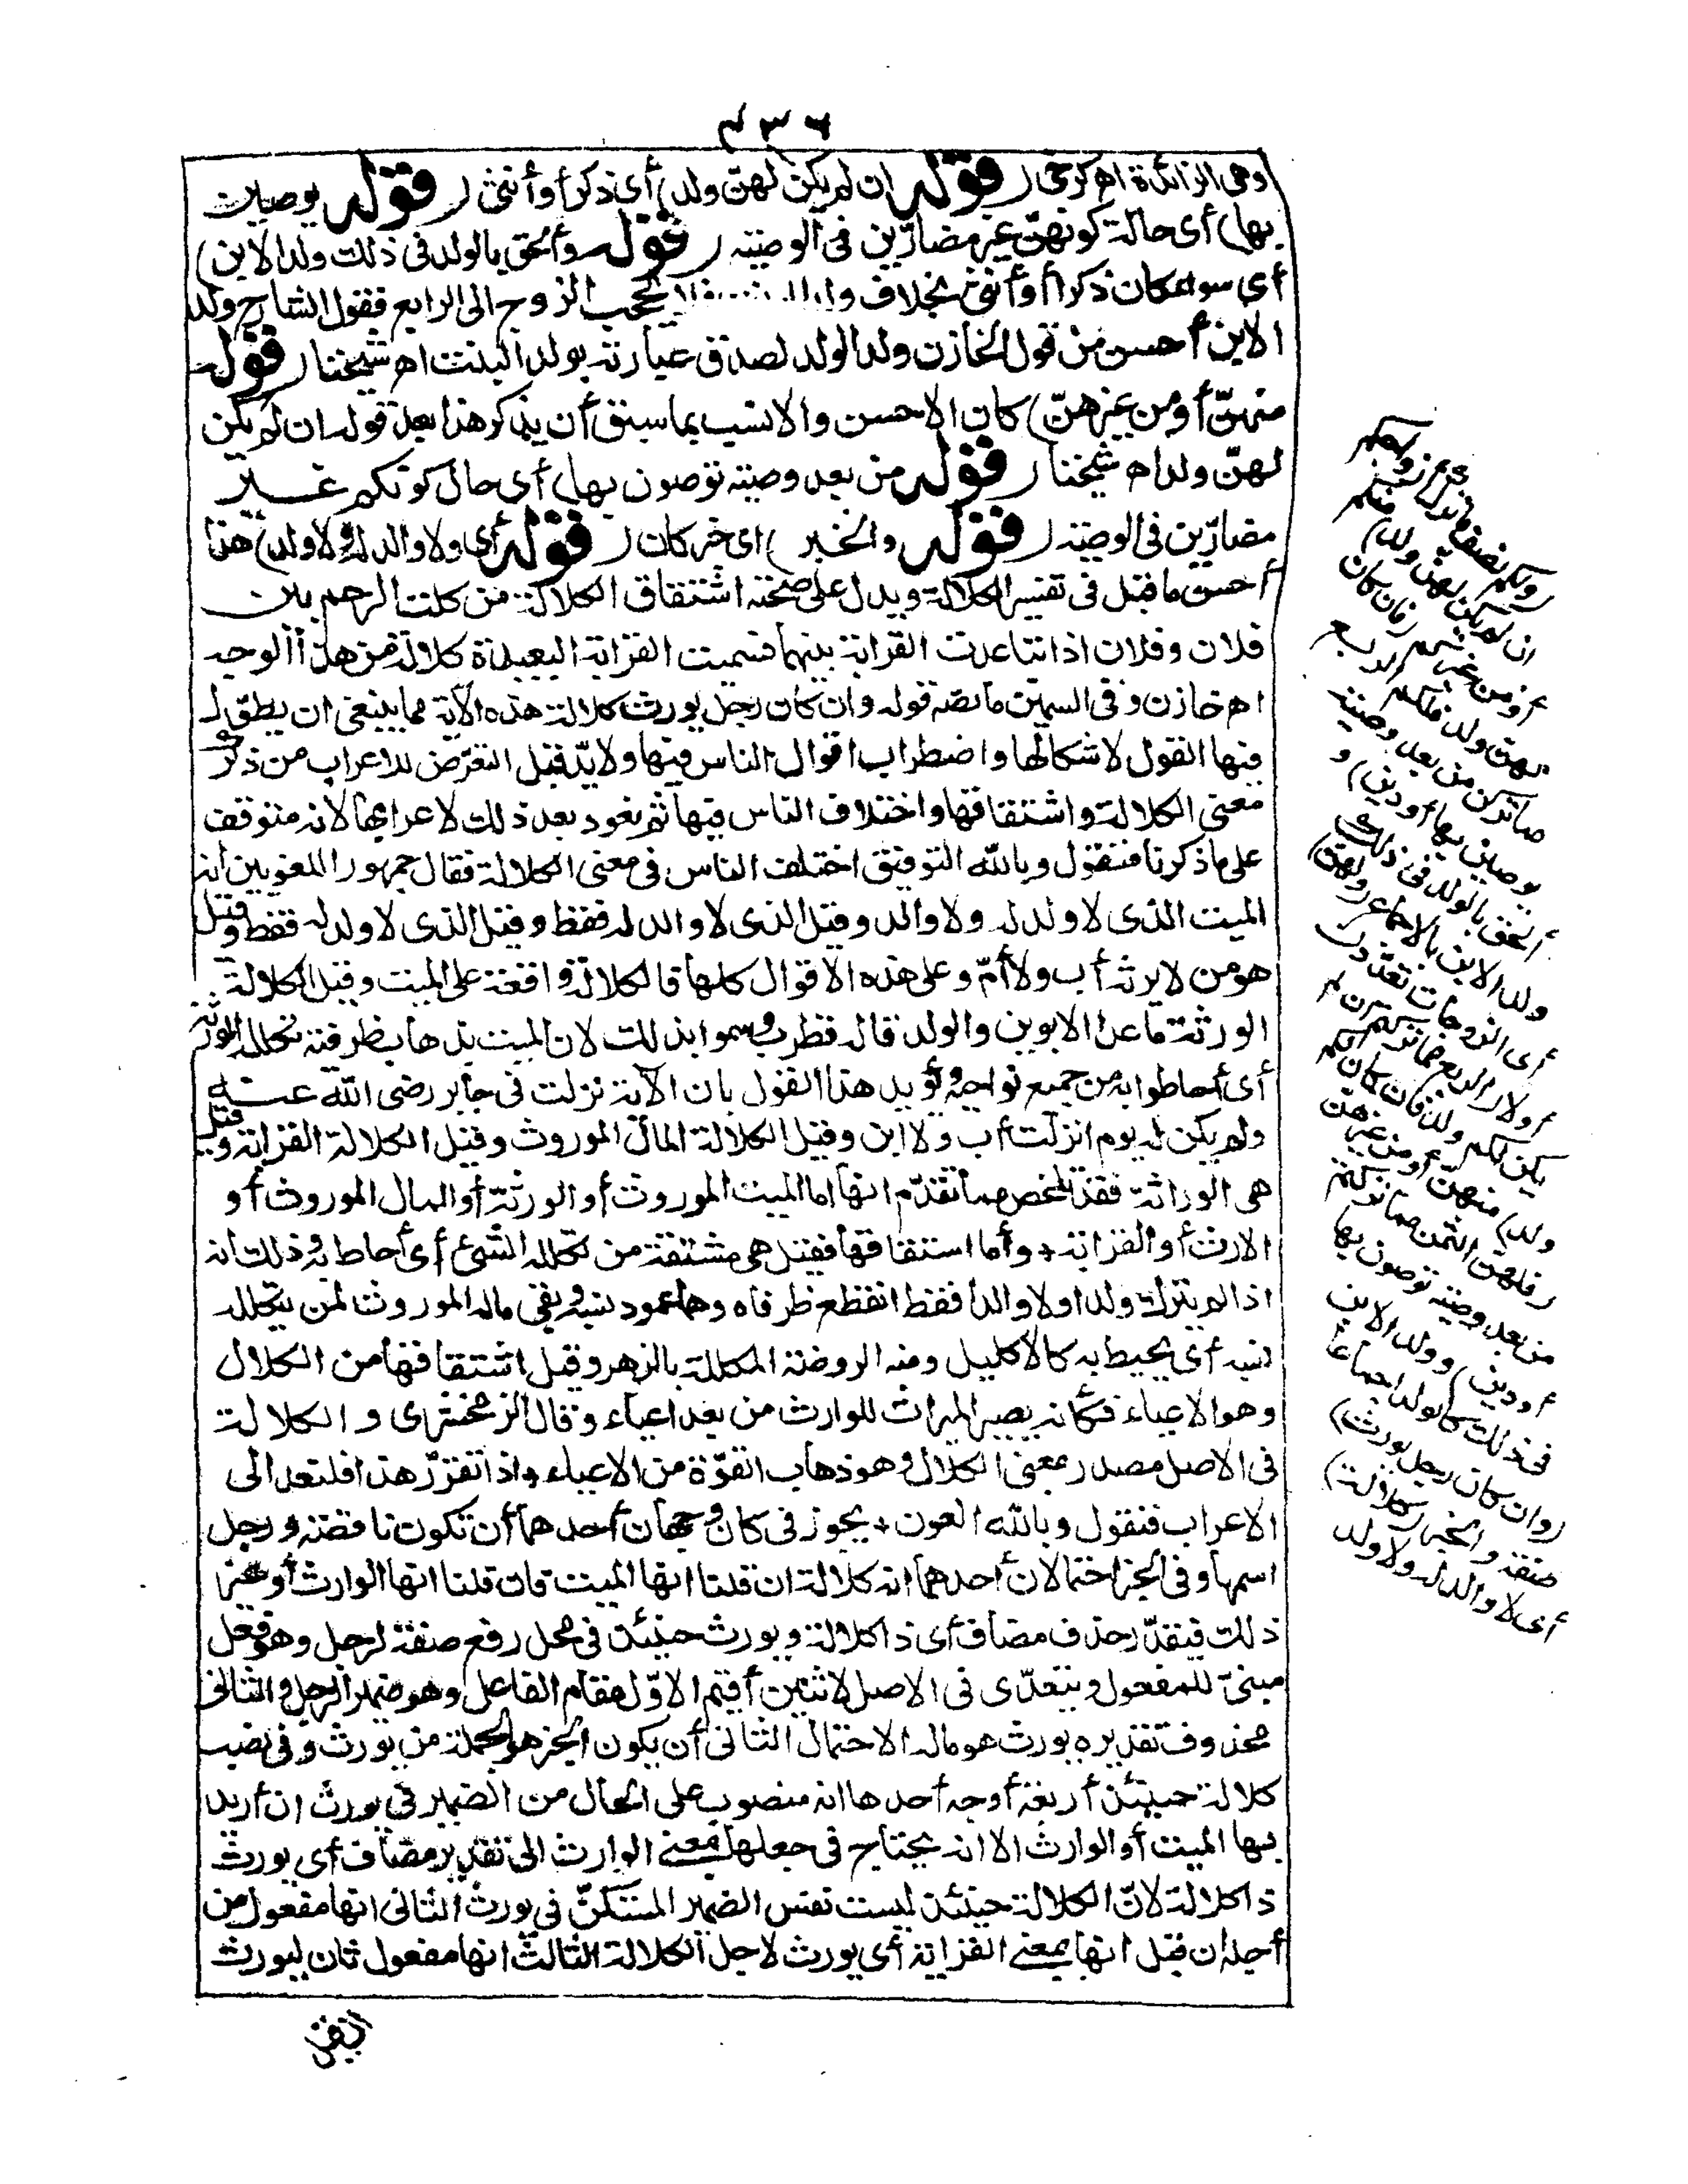 ٤٣٦
وهي الزائدة اه كرخى (قوله ان لم يكن لهنّ ولد) أى ذكرا أو أنثى (قوله يوصين
بها) أى حالة كونهنّ غير مضارّين فى الوصية (قوله وألحق بالولد فى ذلك ولد الابن)
أى سواء كان ذكرا أو أنثى بخلاف فلا يحجب الزوج الى الرابع فقول الشارح ولد
الابن أحسن من قول الخازن ولد الولد لصدق عبارته بولد البنت اه شيخنا (قوله
منهنّ أو من غيرهنّ) كان الاحسن والانسب بما سبق أن يذكر هذا بعد قوله ان لم يكن
لهنّ ولد اه شيخنا (قوله من بعد وصية توصون بها) أى حال كونكم غير
مضارّين فى الوصية (قوله والخبر) اى خبر كان (قوله أى ولا والد له ولا ولد) هذا
أحسن ما قيل فى تفسير الكلالة ويدل على صحته اشتقاق الكلالة من كلت الرحم بين
فلان وفلان اذا تباعدت القرابة بينهما فسميت القرابة البعيدة كلالة من هذا الوجه
اه خازن وفى السمين ما نصه قوله وان كان رجل يورث كلالة هذه الآية مما ينبغى ان يطوّل
فيها القول لاشكالها واضطراب اقوال الناس فيها ولا بدّ قبل التعرّض للاعراب من ذكر
معنى الكلالة واشتقاقها واختلاف الناس فيها ثم نعود بعد ذلك لاعرابها لأنه متوقف
على ما ذكرنا فنقول وبالله التوفيق اختلف الناس فى معنى الكلالة فقال جمهور اللغويين انه
الميت الذى لا ولد له ولا والد وقيل الذى لا والد له فقط وقيل الذى لا ولد له فقط وقيل
هو من لا يرثه أب ولا أمّ وعلى هذه الاقوال كلها فالكلالة واقعة على الميت وقيل الكلالة
الورثة ما عدا الابوين والولد قاله قطرب وسموا بذلك لان الميت بذهاب طرفيه تكلله الورثة
أى أحاطوا به من جميع نواحيه ويؤيد هذا القول بان الآية نزلت فى جابر رضى الله عنه
ولم يكن له يوم انزلت أب ولا ابن وقيل الكلالة المال الموروث وقيل الكلالة القرابة وقيل
هى الوراثة فقد تلخص مما تقدّم انها اما الميت الموروث أو الورثة أو المال الموروث أو
الارث أو القرابة + وأما اشتقاقها فقيل هى مشتقة من تكلله الشئ أى أحاط به وذلك انه
اذا لم يترك ولدا ولا والدا فقط انقطع طرفاه وهما عمود نسبه وبقى ماله الموروث لمن يتكلله
نسبه أى يحيط به كالاكليل ومنه الروضة المكللة بالزهر وقيل اشتقاقها من الكلال
وهو الاعياء فكأنه يصير الميراث للوارث من بعد اعياء وقال الزمخشرى والكلالة
فى الاصل مصدر بمعنى الكلال وهو ذهاب القوّة من الاعياء واذا تقرّر هذا فلنعد الى
الاعراب فنقول وبالله العون + يجوز فى كان وجهان أحدهما أن تكون ناقصة ورجل
اسمها وفى الخبر احتمالان أحدهما انه كلالة ان قلنا انها الميت فان قلنا انها الوارث أو غير
ذلك فيقدّر حذف مضاف أى ذا كلالة ويورث حينئذ فى محل رفع صفة لرجل وهو فعل
مبنىّ للمفعول ويتعدّى فى الاصل لاثنين أقيم الاوّل مقام الفاعل وهو ضمير الرجل والثانى
محذوف تقديره يورث هو ماله الاحتمال الثانى أن يكون الخبر هو الجملة من يورث وفى نصب
كلالة حينئذ أربعة أوجه أحدها انه منصوب على الحال من الضمير فى يورث ان أريد
بها الميت أو الوارث الا انه يحتاج فى جعلها بمعنى الوارث الى تقدير مضاف أى يورث
ذا كلالة لانّ الكلالة حينئذ ليست نفس الضمير المستكنّ فى يورث الثانى انها مفعول من
أجله ان قيل انها بمعنى القرابة أى يورث لاجل الكلالة الثالث انها مفعول ثان ليورث
(ولكم نصف ما ترك أزواجكم
ان لم يكن لهنّ ولد) منكم
أو من غيركم (فان كان
لهنّ ولد فلكم الربع
مما تركن من بعد وصية
يوصين بها أو دين) و
ألحق بالولد فى ذلك
ولد الابن بالاجماع (ولهنّ)
أى الزوجات تعدّدن
أو لا (الربع مما تركتم ان لم
يكن لكم ولد فان كان لكم
ولد) منهنّ أو من غيرهنّ
(فلهنّ الثمن مما تركتم
من بعد وصية توصون بها
أو دين) وولد الابن
فى ذلك كالولد اجماعا
(وان كان رجل يورث)
صفة والخبر (كلالة)
أى لا والد له ولا ولد